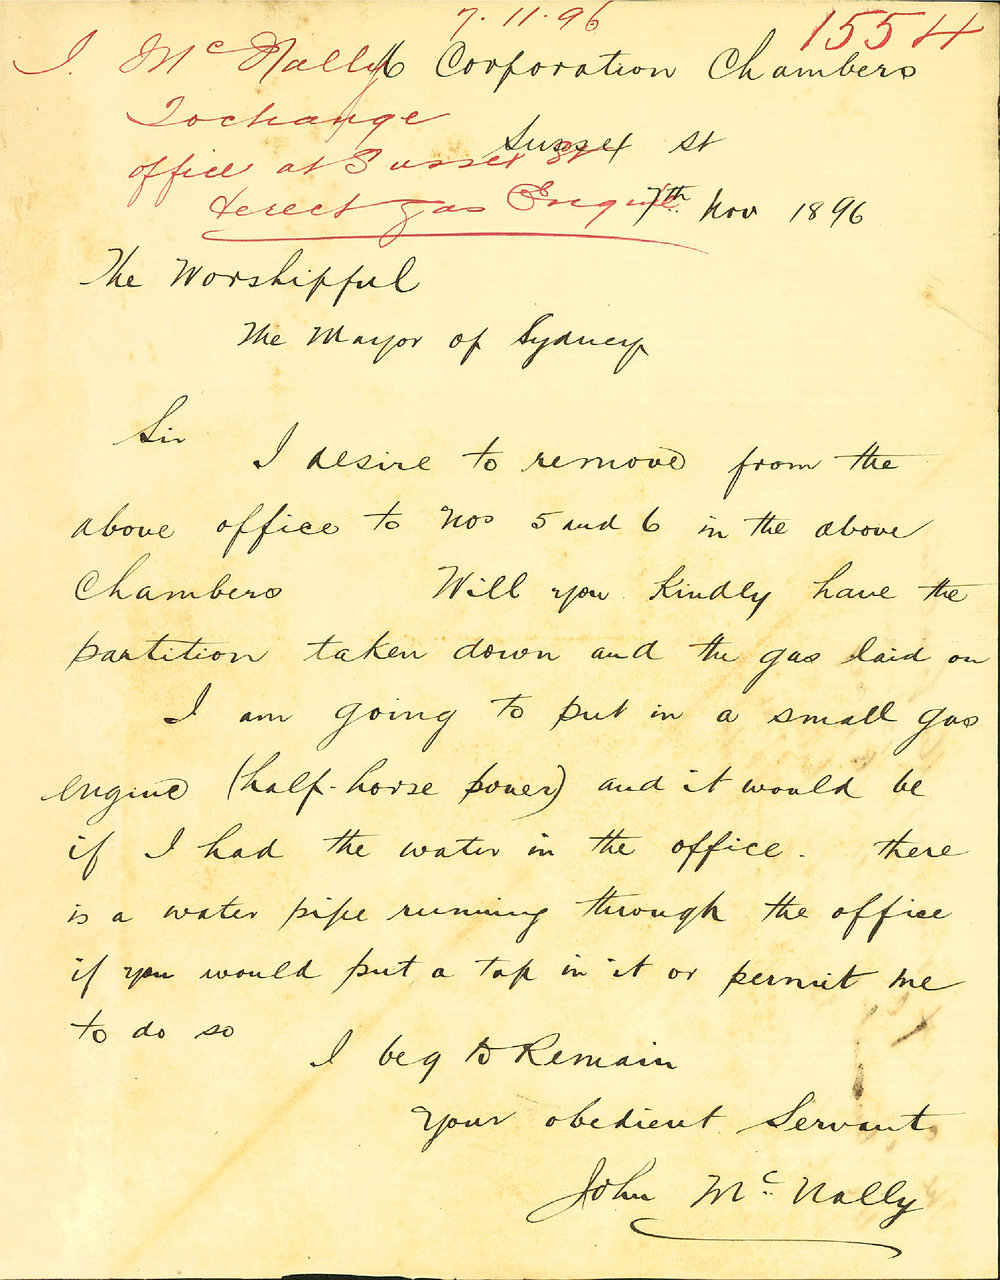 7.11.96
1554
J. McNally
To change
office at Sussex St
& erect gas Engine
16 Corporation Chambers
Sussex St
7th Nov 1896
The Worshipful
The Mayor of Sydney
Sir
I desire to remove from the
above office to Nos 5 and 6 in the above
Chambers Will you kindly have the
partition taken down and the gas laid on
I am going to put in a small gas
engine (half-horse power) and it would be
if I had the water in the office. there
is a water pipe running through the office
if you would put a tap in it or permit me
to do so
I beg to Remain
Your obedient Servant
John McNally